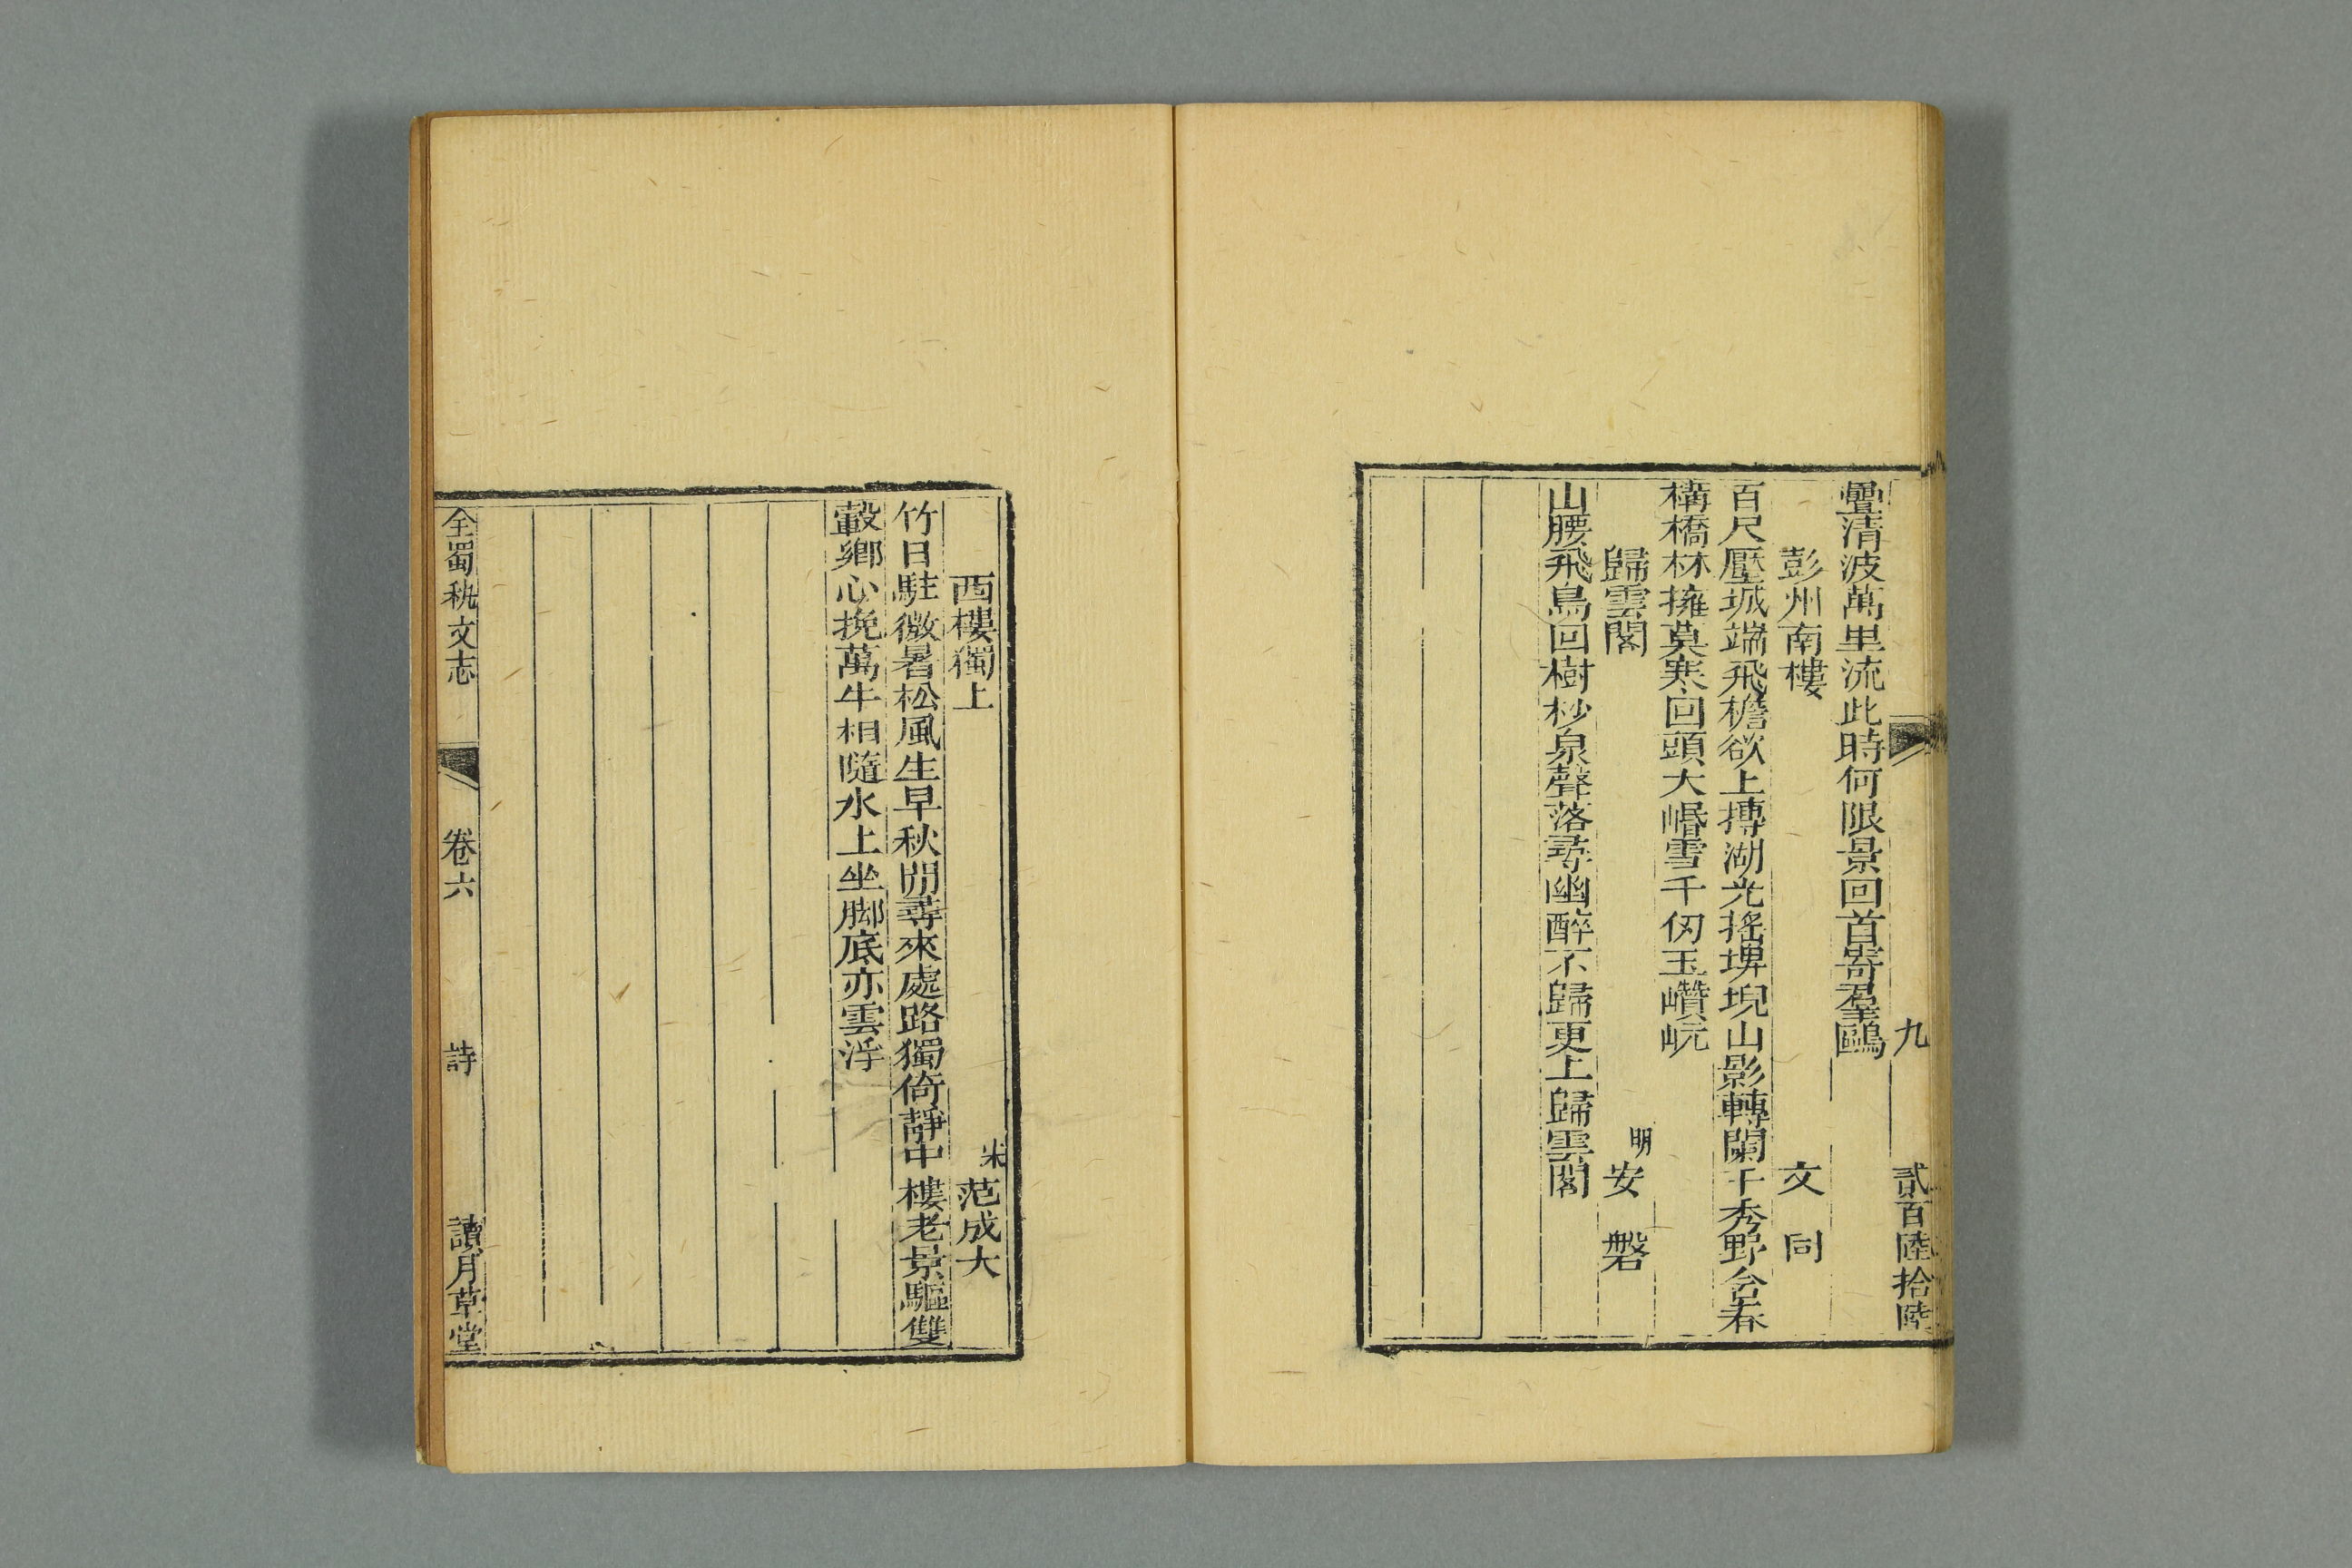 九　貳百陸拾陸
疊清波萬里流此時何限景回首寄羣鷗
彭州南樓　文同
百尺壓城端飛檐欲上摶湖光搖埤堄山影轉闌干秀野含春
構橋林擁莫寒回頭大㟭雪千仞玉巑岏
歸雲閣　明安磐
山腰飛鳥回樹杪泉聲落尋幽醉不歸更上歸雲閣
西樓獨上　宋范成大
竹日駐微暑松風生早秋閒尋來處路獨倚靜中樓老景驅雙
轂鄉心挽萬牛相隨水上坐脚底亦雲浮
全蜀秇文志　卷六　詩　讀月草堂